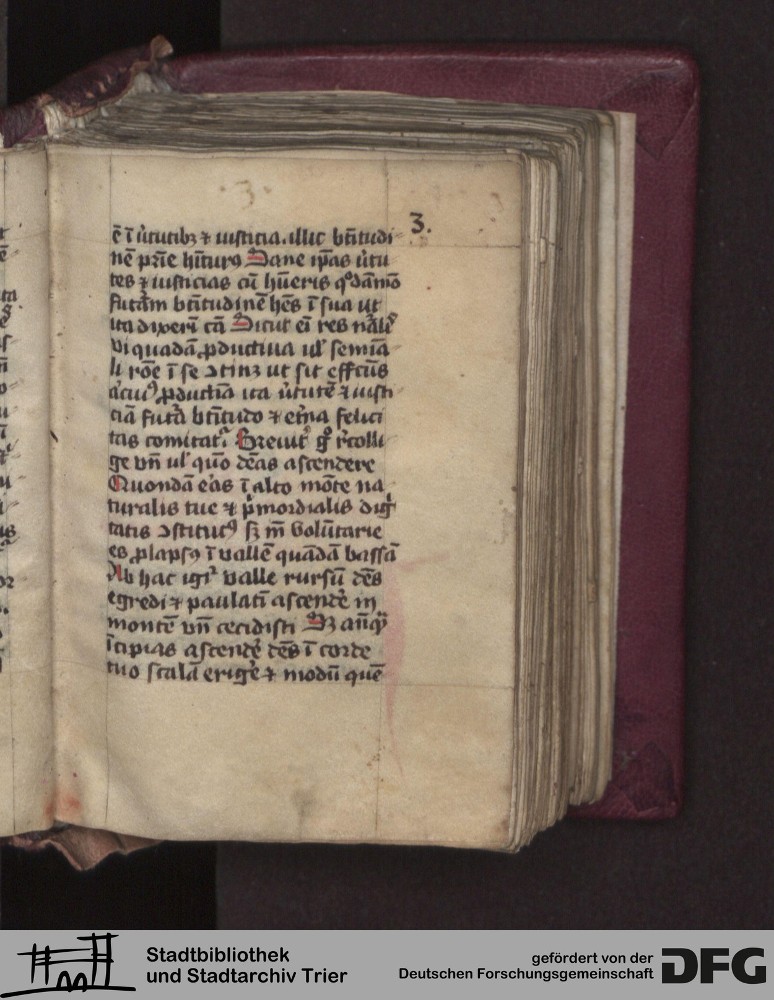 3.
3.
ē ī v̉tutibꝫ ⁊ iusticia. illic bt̄itudi
nē pr̄ie hītur9 Sane ip̄as v̉tu
tes ⁊ iusticias cū hūeris qͦdāmō
futām bt̄itudinē hēs ī sua ut
ita dixerī cā Sicut eī res nāl̉
vi quadā ꝓductiua ul̉ semīa
li rōe ī se ↄtinꝫ ut sit effc̄us
ꝓductīa ita v̉tutē ⁊ iusti
ciā futa bt̄itudo ⁊ et̉na felici
tas comitat᷑ Breuit̉ gͦ r̉colli
ge vn̄ ul̉ quo dēas ascendere
Quondā eās ī alto mōte na
turalis tue ⁊ p̉mordialis dig
tatis ↄstitut9 sꝫ m̄ volūtarie
es ꝓlaps9 ī vallē quādā bassā
Ab hac igr̄ valle rursū dēs
egredi ⁊ paulatī ascendē in
montē vn̄ cecidisti Sꝫ an̄q̄
īcipias ascendē dēs ī corde
tuo scalā erigē ⁊ modū quē
Stadtbibliothek
und Stadtarchiv Trier
gefördert von der
Deutschen Forschungsgemeinschaft
DFG